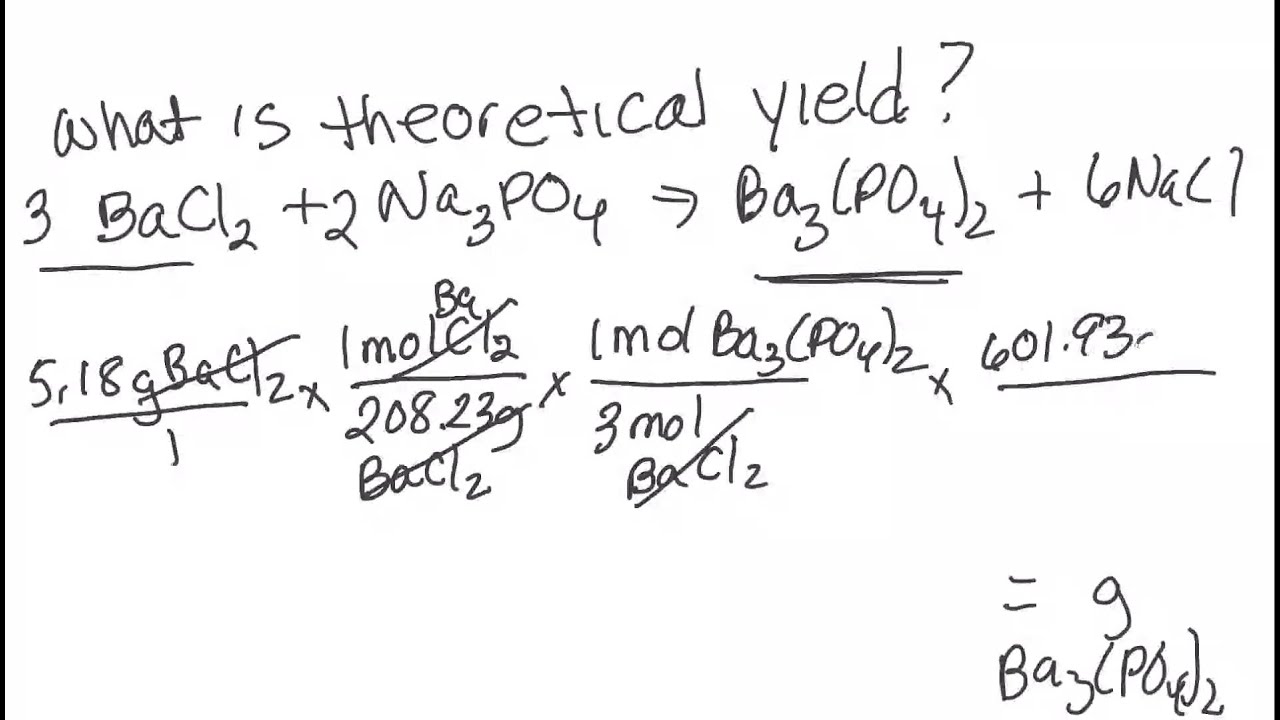 what is theoretical yield?
3 BaCl2 + 2 Na3PO4 → Ba3(PO4)2 + 6NaCl
5.18 g BaCl2 / 1 x 1 mol BaCl2 / 208.23g BaCl2 x 1 mol Ba3(PO4)2 / 3 mol BaCl2 x 601.93
= g
Ba3(PO4)2